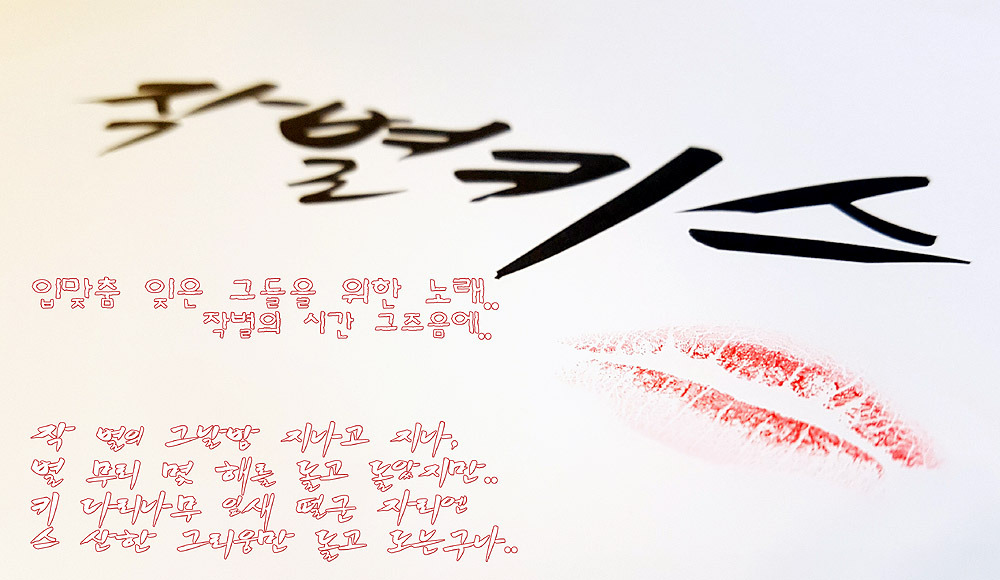 작별키스
입맞춤 잊은 그들을 위한 노래..
작별의 시간 그즈음에..
작 별의 그날밤 지나고 지나,
별 무리 몇 해를 돌고 돌았지만..
키 다리나무 잎새 떨군 자리엔
스 산한 그리움만 돌고 도는구나..